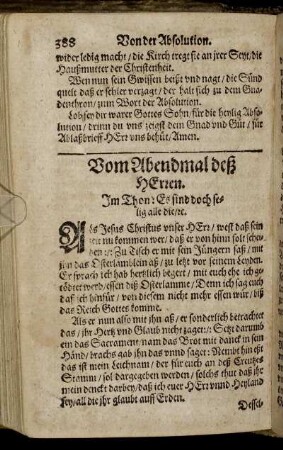 388 Von der Absolution.
wider ledig macht / die Kirch tregt sie an jrer Seyt / die
Haußmutter der Christenheit.
Wen nun sein Gwissen beißt vnd nagt / die Sünd
quelt daß er schier verzagt / der halt sich zu dem Gna-
denthron / zum Wort der Absolution.
Lob sey dir warer Gottes Sohn / für die heylig Abso-
lution / drinn du vns zeigst dein Gnad vnd Güt / für
Ablaßbrieff HErr vns behüt / Amen.
Vom Abendmal deß
HErren.
Im Thon: Es sind doch se-
lig alle die / etc.
Als Jesus Christus vnser HErr / west daß sein
zeit nu kommen wer / daß er von hinn solt schei-
den :/: Zu Tisch er mit sein Jüngern saß / mit
jhn das Osterlämblein aß / zu letzt vor seinem Leyden.
Er sprach ich hab hertzlich begert / mit euch ehe ich ge-
tödtet werd / essen diß Osterlamme / Denn ich sag euch
daß ich hinfür / von diesem nicht mehr essen würd / biß
das Reich Gottes komme.
Als er nun also mit jhn aß / er sonderlich betrachtet
das / jhr Hertz vnd Glaub nicht zage :/: Setzt darumb
ein das Sacrament / nam das Brot mit danck in sein
Händ / brachs gab jhn das vnnd saget: Nembt hin eßt
das ist mein Leichnam / der für euch an deß Creutzes
Stamm / sol dargegeben werden / solchs thut daß jhr
mein denckt darbey / daß ich ewer HErr vnnd Heyland
sey / all die jhr glaubt auff Erden.
Dessel-